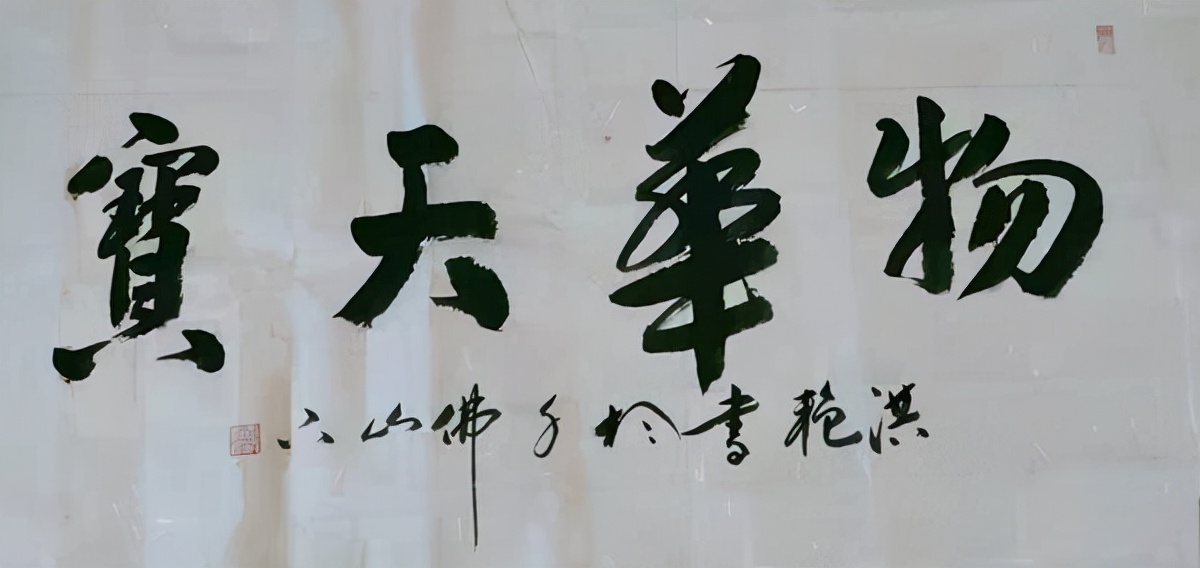 物華天寶
洪艳書於千佛山下